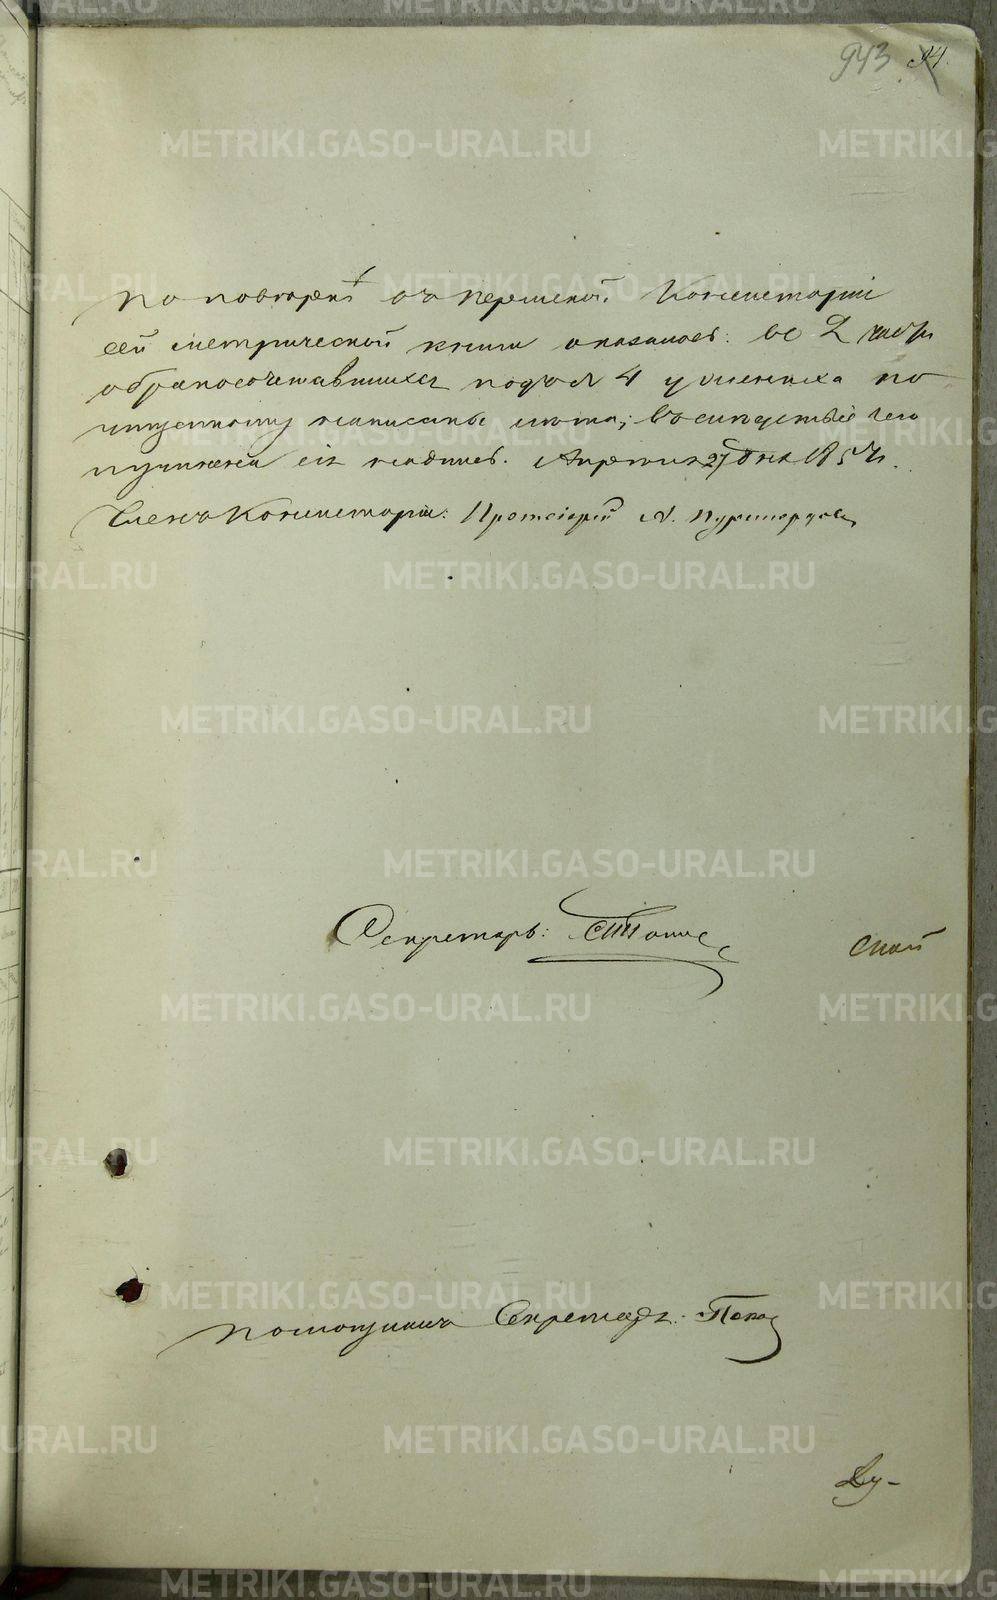 943 94.
По поверкѣ въ Пермской Консисторіи
сей метрической книги оказалось: во 2 части
о бракосочетавшихся подъ № 4 у жениха по
пропущенному написаны лѣта; вслѣдствіе чего
учинена сія надпись. Апрѣля 27 дня 185
Членъ Консисторіи: Протоіерей А.
Секретарь:
ской
Помощникъ Секретаря: Попов
Ду-
METRIKI.GASO-URAL.RU